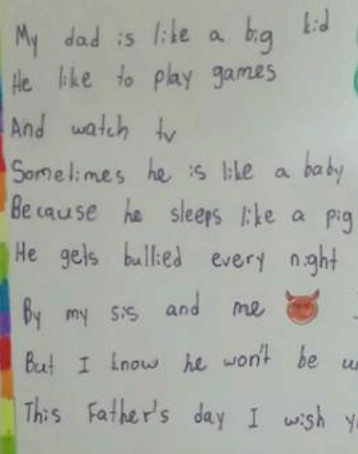 My dad is like a big kid
He like to play games
And watch tv
Sometimes he is like a baby
Because he sleeps like a pig
He gets bullied every night
By my sis and me
But I know he won't be
This Father's day I wish